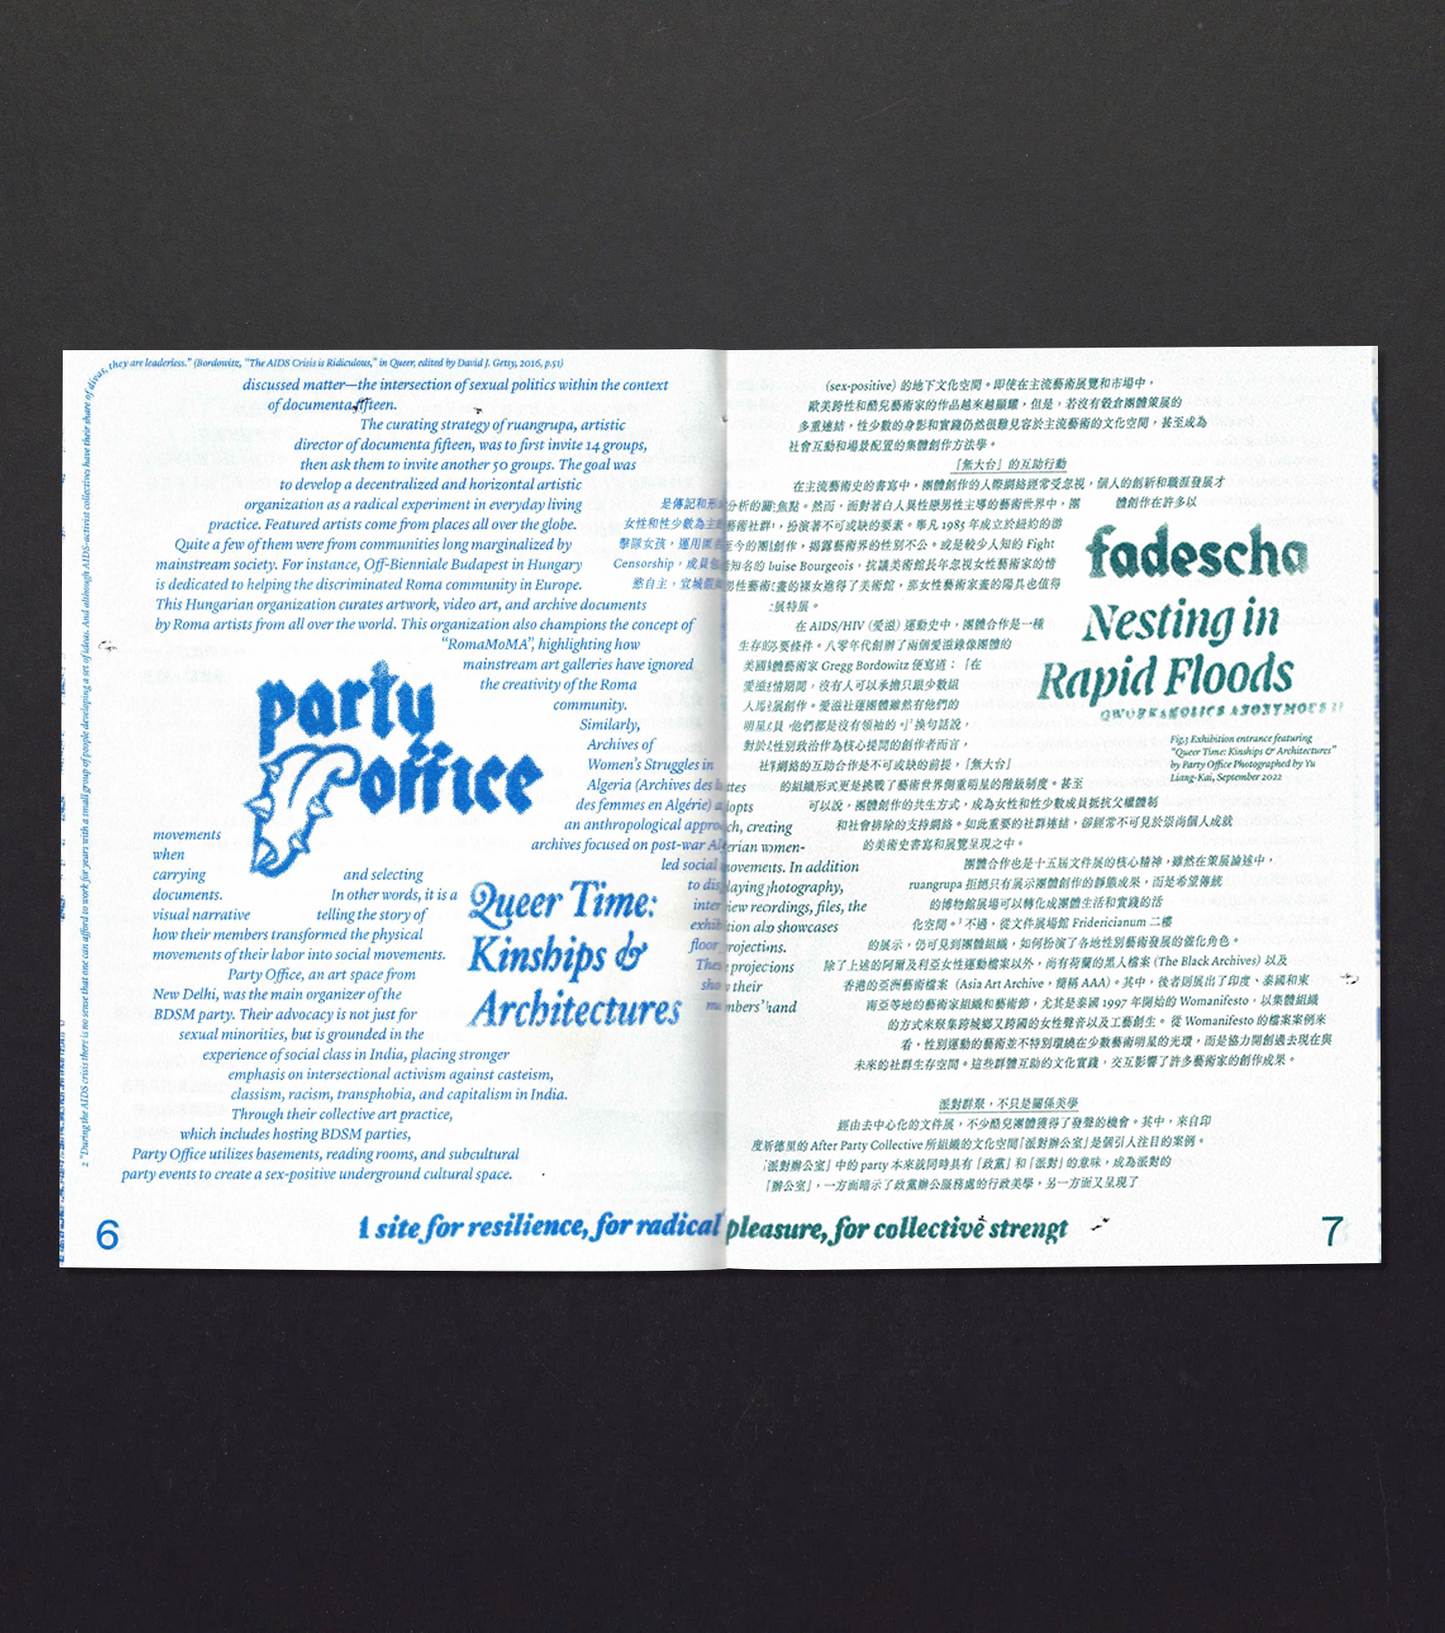 they are leaderless.” (Bordowitz, “The AIDS Crisis is Ridiculous,” in Queer, edited by David J. Getsy, 2016, p.51)
2 “During the AIDS crisis there is no sense that one can afford to work for years with a small group of people developing a set of ideas. And although AIDS-activist collectives have their share of divas,
discussed matter—the intersection of sexual politics within the context
of documenta fifteen.
The curating strategy of ruangrupa, artistic
director of documenta fifteen, was to first invite 14 groups,
then ask them to invite another 50 groups. The goal was
to develop a decentralized and horizontal artistic
organization as a radical experiment in everyday living
practice. Featured artists come from places all over the globe.
Quite a few of them were from communities long marginalized by
mainstream society. For instance, Off-Biennale Budapest in Hungary
is dedicated to helping the discriminated Roma community in Europe.
This Hungarian organization curates artwork, video art, and archive documents
by Roma artists from all over the world. This organization also champions the concept of
“RomaMoMA”, highlighting how
mainstream art galleries have ignored
the creativity of the Roma
community.
Similarly,
Archives of
Women’s Struggles in
Algeria (Archives des luttes
des femmes en Algérie) adopts
an anthropological approach, creating
archives focused on post-war Algerian women-
led social movements. In addition
to displaying photography,
interview recordings, files, the
exhibition also showcases
floor projections.
These projections
show their
members’ hand
movements
when
carrying and selecting
documents. In other words, it is a
visual narrative telling the story of
how their members transformed the physical
movements of their labor into social movements.
Party Office, an art space from
New Delhi, was the main organizer of the
BDSM party. Their advocacy is not just for
sexual minorities, but is grounded in the
experience of social class in India, placing stronger
emphasis on intersectional activism against casteism,
classism, racism, transphobia, and capitalism in India.
Through their collective art practice,
which includes hosting BDSM parties,
Party Office utilizes basements, reading rooms, and subcultural
party events to create a sex-positive underground cultural space.
party
office
Queer Time:
Kinships &
Architectures
6
(sex-positive) 的地下文化空間。即使在主流藝術展覽和市場中，
歐美跨性和酷兒藝術家的作品越來越顯耀，但是，若沒有穀倉團體策展的
多重連結，性少數的身影和實踐仍然很難見容於主流藝術的文化空間，甚至成為
社會互動和場景配置的集體創作方法學。
「無大台」的互助行動
在主流藝術史的書寫中，團體創作的人際網絡經常受忽視，個人的創新和職涯發展才
是傳記和形式分析的關注焦點。然而，面對著白人異性戀男性主導的藝術世界中，團 體創作在許多以
女性和性少數為主的藝術社群，扮演著不可或缺的要素。舉凡 1985 年成立於紐約的游
擊隊女孩，運用匿名至今的團體創作，揭露藝術界的性別不公。或是較少人知的 Fight
Censorship，成員包括知名的 Louise Bourgeois，抗議美術館長年忽視女性藝術家的情
慾自主，宣城假如男性藝術家畫的裸女進得了美術館，那女性藝術家畫的陽具也值得
展特展。
在 AIDS/HIV (愛滋) 運動史中，團體合作是一種
生存的必要條件。八零年代創辦了兩個愛滋錄像團體的
美國媒體藝術家 Gregg Bordowitz 便寫道：「在
愛滋疫情期間，沒有人可以承擔只跟少數組
人馬發展創作。愛滋社運團體雖然有他們的
明星成員，他們都是沒有領袖的。」² 換句話說，
對於以性別政治作為核心提問的創作者而言，
社群網絡的互助合作是不可或缺的前提，「無大台」
的組織形式更是挑戰了藝術世界側重明星的階級制度。甚至
可以說，團體創作的共生方式，成為女性和性少數成員抵抗父權體制
和社會排除的支持網絡。如此重要的社群連結，卻經常不可見於崇尚個人成就
的美術史書寫和展覽呈現之中。
團體合作也是十五屆文件展的核心精神，雖然在策展論述中，
ruangrupa 拒絕只有展示團體創作的靜態成果，而是希望傳統
的博物館展場可以轉化成團體生活和實踐的活
化空間。³ 不過，從文件展場館 Fridericianum 二樓
的展示，仍可見到團體組織，如何扮演了各地性別藝術發展的催化角色。
除了上述的阿爾及利亞女性運動檔案以外，尚有荷蘭的黑人檔案 (The Black Archives) 以及
香港的亞洲藝術檔案（Asia Art Archive，簡稱 AAA）。其中，後者則展出了印度、泰國和東
南亞等地的藝術家組織和藝術節，尤其是泰國 1997 年開始的 Womanifesto，以集體組織
的方式來聚集跨城鄉又跨國的女性聲音以及工藝創生。 從 Womanifesto 的檔案案例來
看，性別運動的藝術並不特別環繞在少數藝術明星的光環，而是協力開創過去現在與
未來的社群生存空間。這些群體互助的文化實踐，交互影響了許多藝術家的創作成果。
派對群聚，不只是關係美學
經由去中心化的文件展，不少酷兒團體獲得了發聲的機會。其中，來自印
度新德里的 After Party Collective 所組織的文化空間「派對辦公室」是個引人注目的案例。
「派對辦公室」中的 party 本來就同時具有「政黨」和「派對」的意味，成為派對的
「辦公室」，一方面暗示了政黨辦公服務處的行政美學，另一方面又呈現了
fadescha
Nesting in
Rapid Floods
QWORKAHOLICS ANONYMOUS II
Fig.3 Exhibition entrance featuring
“Queer Time: Kinships & Architectures”
by Party Office Photographed by Yu
Liang-Kai, September 2022
site for resilience, for radical pleasure, for collective strengt
7